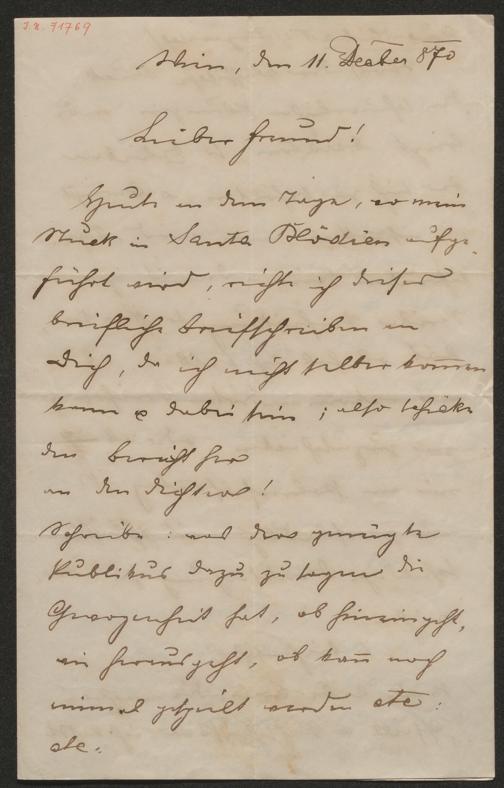 I.N. 71769
Wien, den 11. Dezber 870
Lieber Freund!
Heute an dem Tage, wo mein
Stück in Santa Blödien aufge-
führt wird, richte ich dieses
briefliche Briefschreiben an
Dich, da ich nicht selber kom̅en
kann & dabei sein; also schicke
den Bericht her
an den Dichter!
Schreibe: was das geneigte
Publikus dazu zu sagen die
Gewogenheit hat, ob hineingeht,
ob kan̅ noch
einmal gespielt werden etc:
etc.